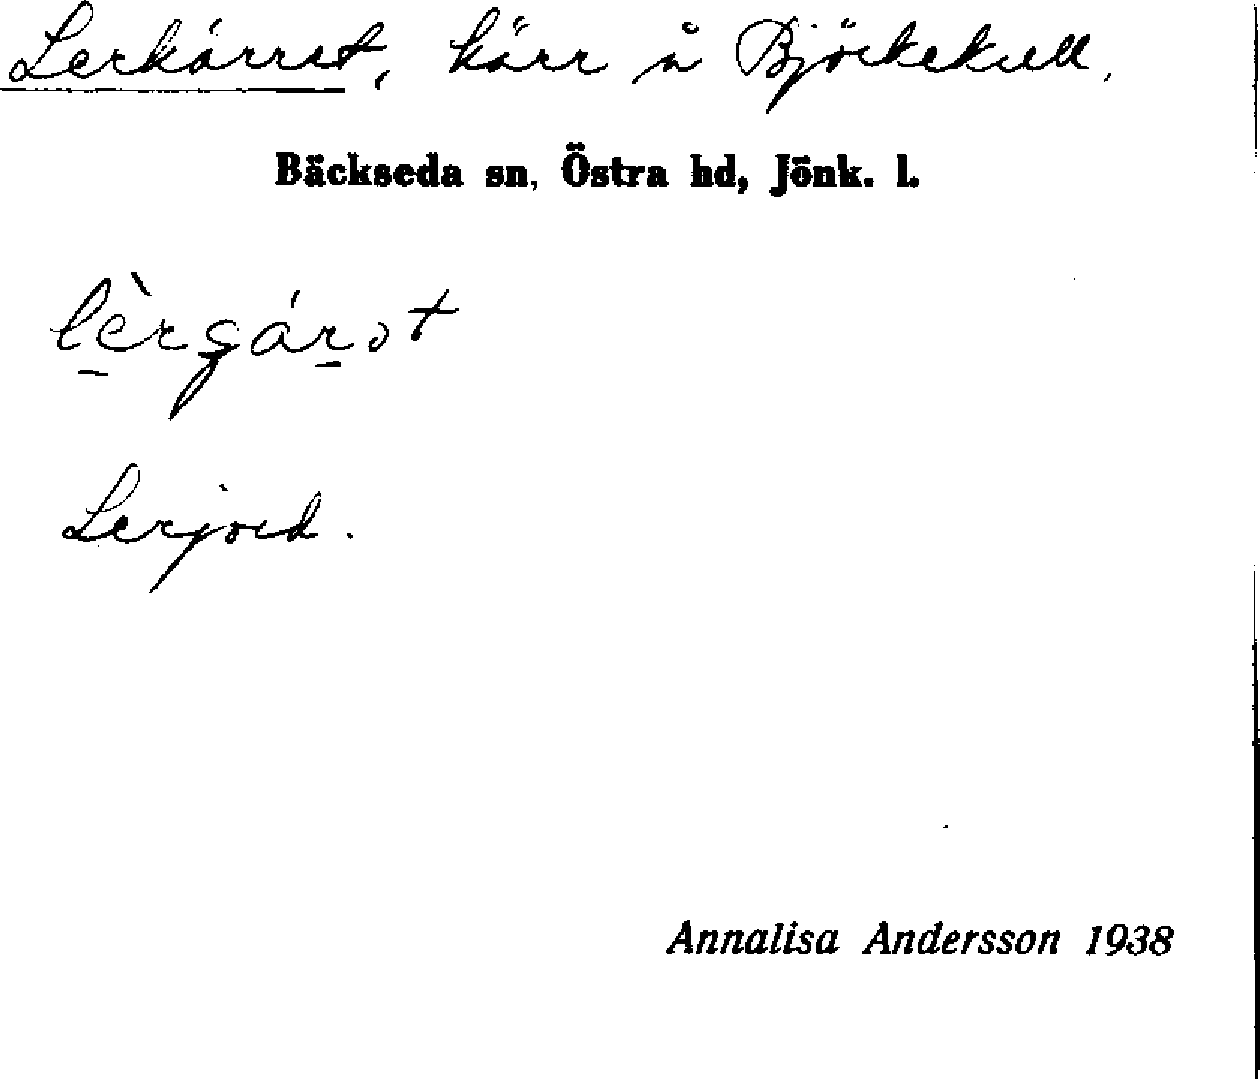 Lerkärret, kärr å Björkekull.
Bäckseda sn, Östra hd, Jönk. l.
Lerjord.
Annalisa Andersson 1938